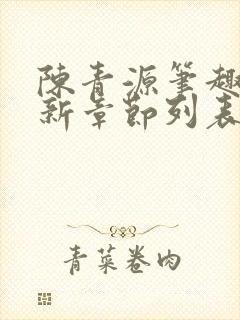 陳青源筆趣
新章節列表
青菜卷肉